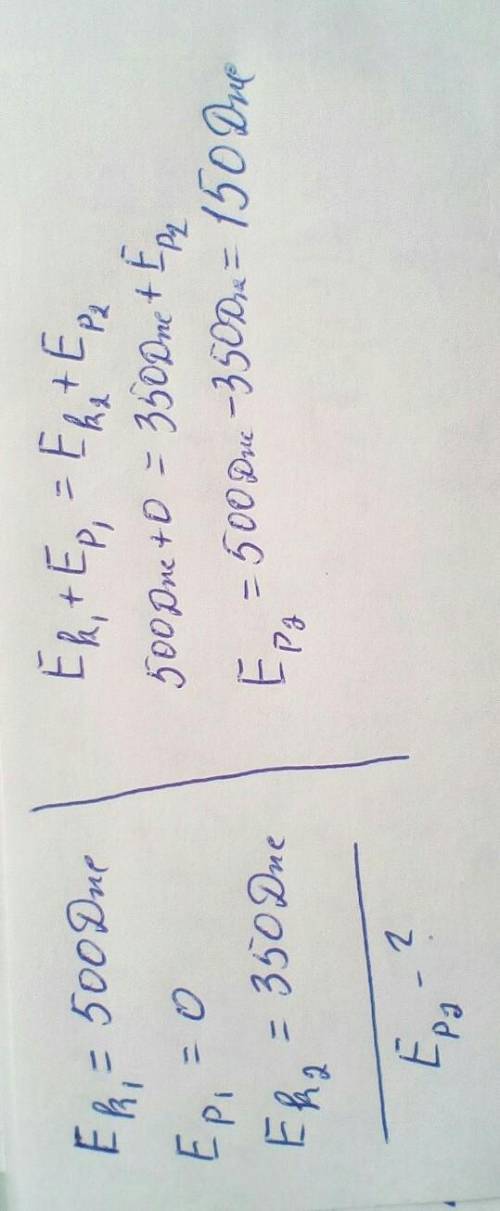 E k₁ = 500 Дж
E p₁ = 0
E k₂ = 350 Дж
E p₂ - ?
E k₁ + E p₁ = E k₂ + E p₂
500 Дж + 0 = 350 Дж + E p₂
E p₂ = 500 Дж - 350 Дж = 150 Дж